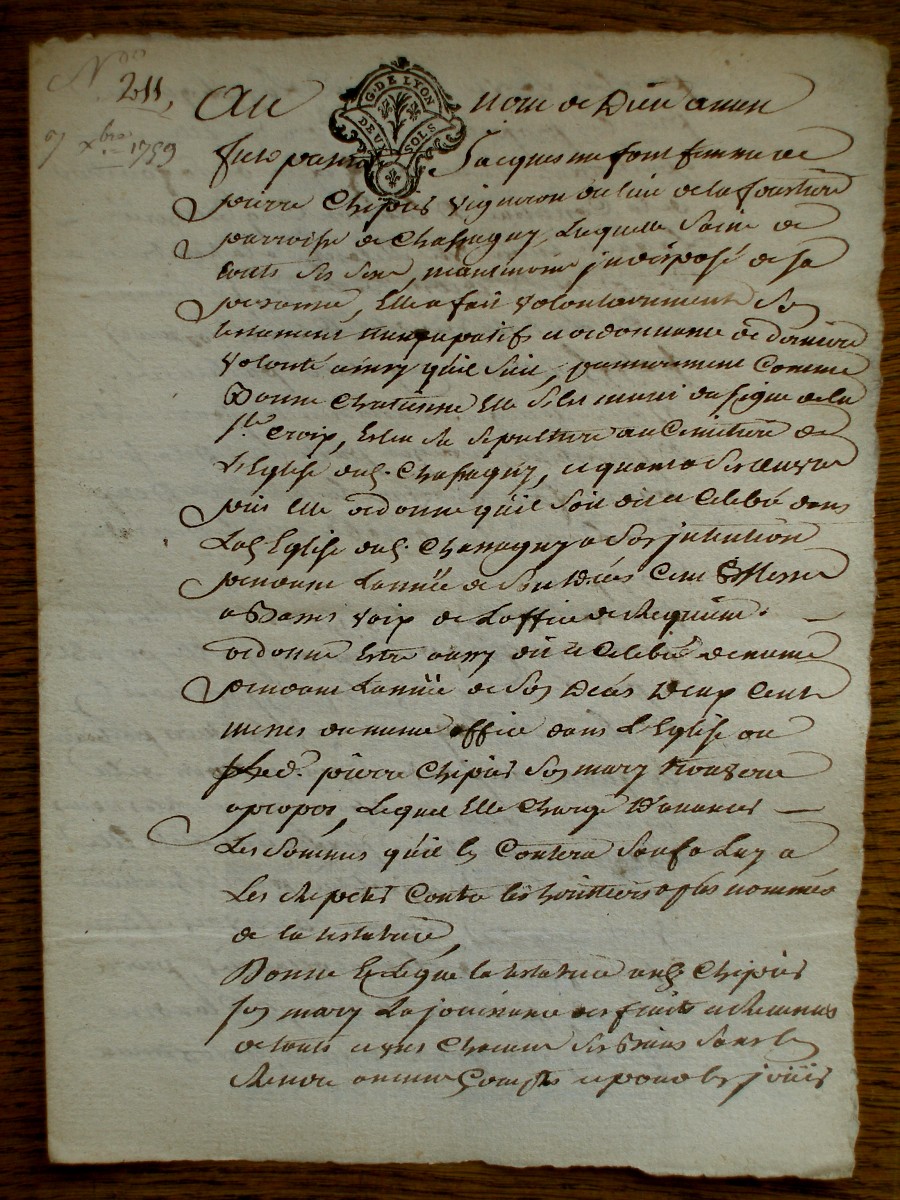 N° 211,
7 xbre 1759
G. DE LYON
DEUX SOLS
Au nom de Dieu amen
fut presente Jacquesme font femme de
pierre Chipier Vigneron du lieu de la
parroisse de Chassagny, Laquelle Saine de
touts ses sens, memoire, indisposé de sa
personne, Elle a fait volontairement Son
testament nuncupatif et ordonnance de derniere
Volonté ainsy qu'il suit, premierement Comme
Bonne Chretienne Elle s'est muni du signe de la
ste Croix, Eslu Sa Sepulture au Cimetiere de
L'Eglise dud. Chassagny, et quant a ses œuvres
pies elle ordonne qu'il soit dit et Celebré dans
Lad Eglise dud. Chassagny a Son intention
pendant L'année de Son Décés Cent Messes
a Basses voix de L'office de Requiem.
ordonne Estre aussy dit et Celebré de meme
pendant L'année de Son Décés Deux Cent
messes du meme office dans L'Eglise ou
led. pierre Chipier Son mary trouvera
apropos, Lequel Elle Charge D'avancer
Les Sommes qu'il en Coutera Sauf a Luy a
Les Repeter Contre les heritiers apres nommés
de la testatrice,
Donne Et Legue la testatrice aud Chipier
son mary La jouissance des fruits et Revenus
de touts et uns Chacuns Ses Biens Sans en
Rendre aucun Compte et pour en jouir